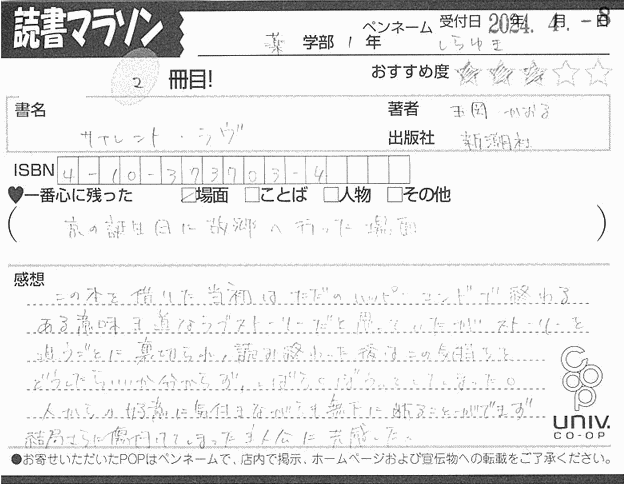 読書マラソン
薬 学部 1 年
ペンネーム しらゆき
受付日 2024. 年 4. 月 -8 日
2 冊目!
おすすめ度 ★★★☆☆
書名 サイレント・ラヴ
著者 玉岡 かおる
出版社 新潮社
ISBN 4-10-373703-4
♥一番心に残った ☑場面 □ことば □人物 □その他
(京の誕生日に故郷へ行った場面)
感想
この本を借りた当初はただのハッピーエンドで終わる
ある意味王道なラブストーリーだと思っていたがストーリーを
追うごとに裏切られ、読み終わった後はこの気持ちを
どうしたらいいか分からず、しばらくぼうっとしてしまった。
人からの好意に気付きながらも無下に断ることができず
結局さらに傷付けてしまった主人公に共感した。
coop
UNIV.
CO-OP
●お寄せいただいたPOPはペンネームで、店内で掲示、ホームページおよび宣伝物への転載をご了承ください。